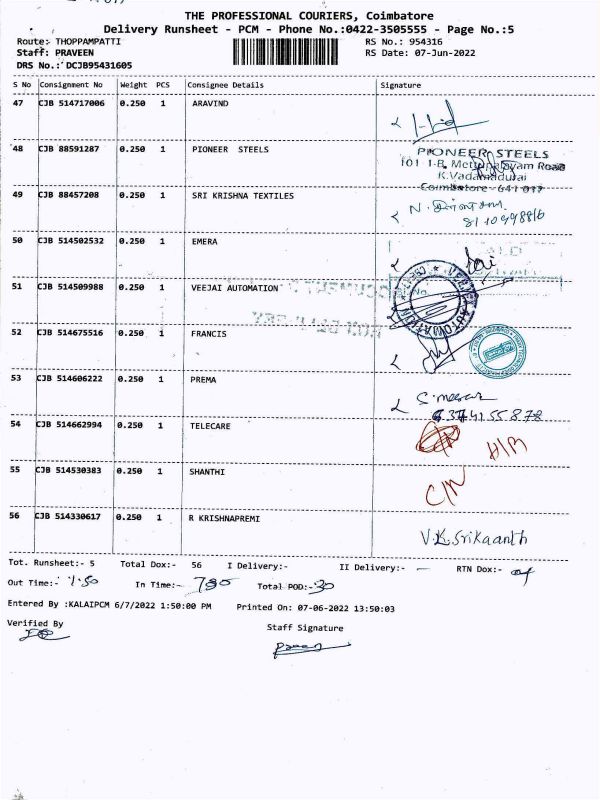 THE PROFESSIONAL COURIERS, Coimbatore
Delivery Runsheet - PCM - Phone No.:0422-3505555 - Page No.:5
Route:- THOPPAMPATTI RS No.: 954316
Staff: PRAVEEN RS Date: 07-Jun-2022
DRS No.: DCJB95431605
S No Consignment No Weight PCS Consignee Details Signature
47 CJB 514717006 0.250 1 ARAVIND
48 CJB 88591287 0.250 1 PIONEER STEELS
PIONEER STEELS
101 1-B, Mettupalayam Road
K.Vadamadurai
Coimbatore - 641 017
49 CJB 88457208 0.250 1 SRI KRISHNA TEXTILES
50 CJB 514502532 0.250 1 EMERA
51 CJB 514509988 0.250 1 VEEJAI AUTOMATION
VEEJAI AUTOMATION
52 CJB 514675516 0.250 1 FRANCIS
53 CJB 514606222 0.250 1 PREMA
54 CJB 514662994 0.250 1 TELECARE
55 CJB 514530383 0.250 1 SHANTHI
C/N
56 CJB 514330617 0.250 1 R KRISHNAPREMI V.K.Srikaanth
Tot. Runsheet:- 5 Total Dox:- 56 I Delivery:- II Delivery:- - RTN Dox:-
Out Time:- 1.50 In Time:- Total POD:- 30
Entered By :KALAIPCM 6/7/2022 1:50:00 PM Printed On: 07-06-2022 13:50:03
Verified By Staff Signature